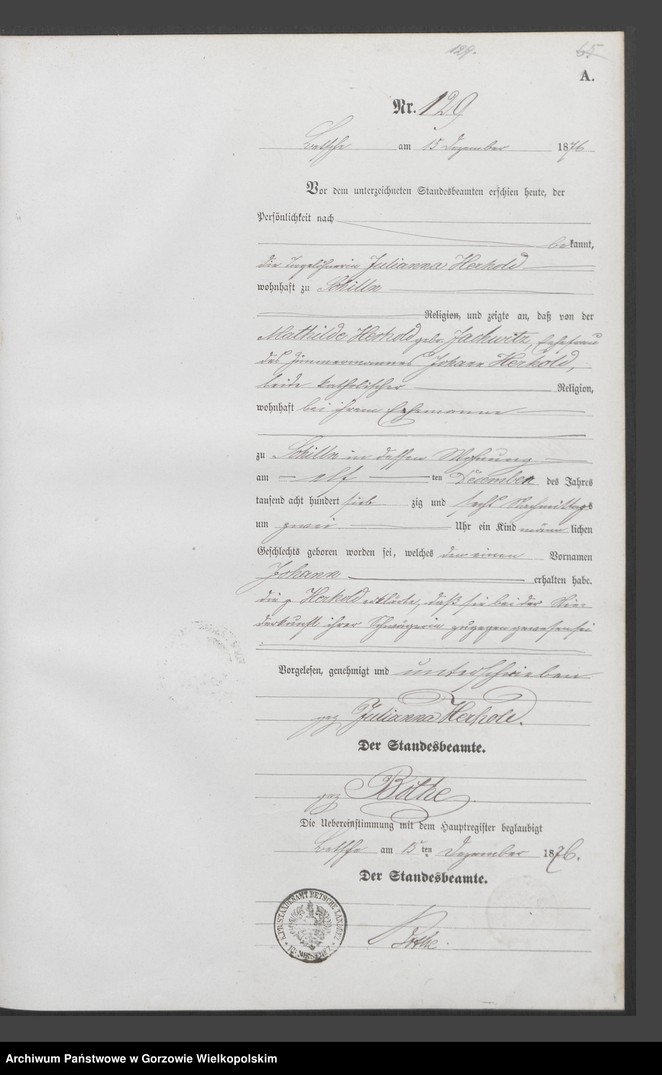 129. 65
A.
Nr. 129
Betsche am 15 Dezember 1876
Vor dem unterzeichneten Standesbeamten erschien heute, der
Persönlichkeit nach
bekannt,
die Tagelöhnerin Julianna Herhold
wohnhaft zu Schilln
Religion, und zeigte an, daß von der
Mathilde Herhold geb. Jachwitz, Ehefrau
des Zimmermannes Johann Herhold,
beide katholischer Religion,
wohnhaft bei ihrem Ehemanne
zu Schilln in dessen Wohnung
am elf ten Dezember des Jahres
tausend acht hundert sieb zig und sechs Nachmittags
um zwei Uhr ein Kind männ lichen
Geschlechts geboren worden sei, welches den einen Vornamen
Johann erhalten habe.
die p. Herhold erklärte, daß sie bei der Nie-
derkunft ihrer Schwägerin zugegen gewesen sei
Vorgelesen, genehmigt und unterschrieben
gez Julianna Herhold.
Der Standesbeamte.
gez Bothe.
Die Uebereinstimmung mit dem Hauptregister beglaubigt
Betsche am 15ten Dezember 1876.
Der Standesbeamte.
Bothe.
Archiwum Państwowe w Gorzowie Wielkopolskim